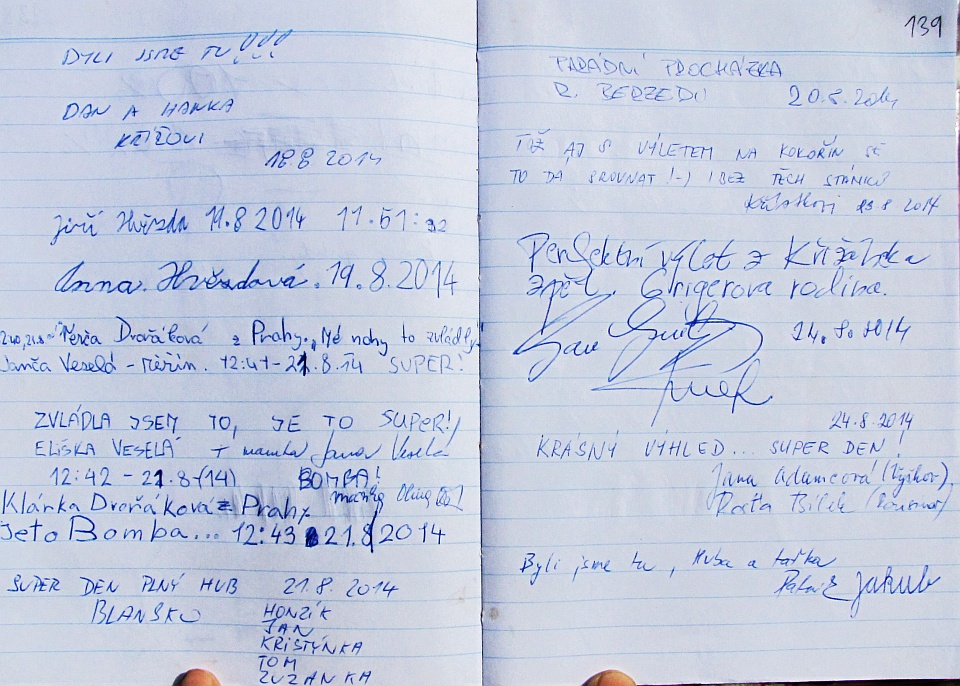 BYLI JSME TU!!!
DAN A HANKA
KŘÍŽOVI
18.8 2014
Jiří Hvězda 11.8 2014 11:51:32
Anna Hvězdová. 19.8.2014
Terča Dvořáková z Prahy. „Mé nohy to zvládly"
Janča Veselá - Měřín. 12:41-21.8.14 SUPER!
ZVLÁDLA JSEM TO, JE TO SUPER!
ELIŠKA VESELÁ + mamka Jana Veselá
12:42 - 21.8-(14) BOMBA!
Klárka Dvořáková z Prahy
jeto Bomba... 12:43 21.8 2014
SUPER DEN PLNÝ HUB 21.8 2014
BLANSKO HONZÍK
JAN
KRISTÝNKA
TOM
ZUZANKA
139
PARÁDNÍ PROCHÁZKA
R. BERZEDI 20.8.2014
TIŽ AJ S VÝLETEM NA KOKOŘÍN SE
TO DÁ SROVNAT!:-) I BEZ TĚCH STÁNKŮ
23 8 2014
Perfektní výlet z Křižánka
zpět. Grigerova rodina.
24.8.2014
24.8.2014
KRÁSNÝ VÝHLED... SUPER DEN!
Jana Adamcová (Vyškov)
Rosťa Bílek
Byli jsme tu, Kuba a taťka
Jakub